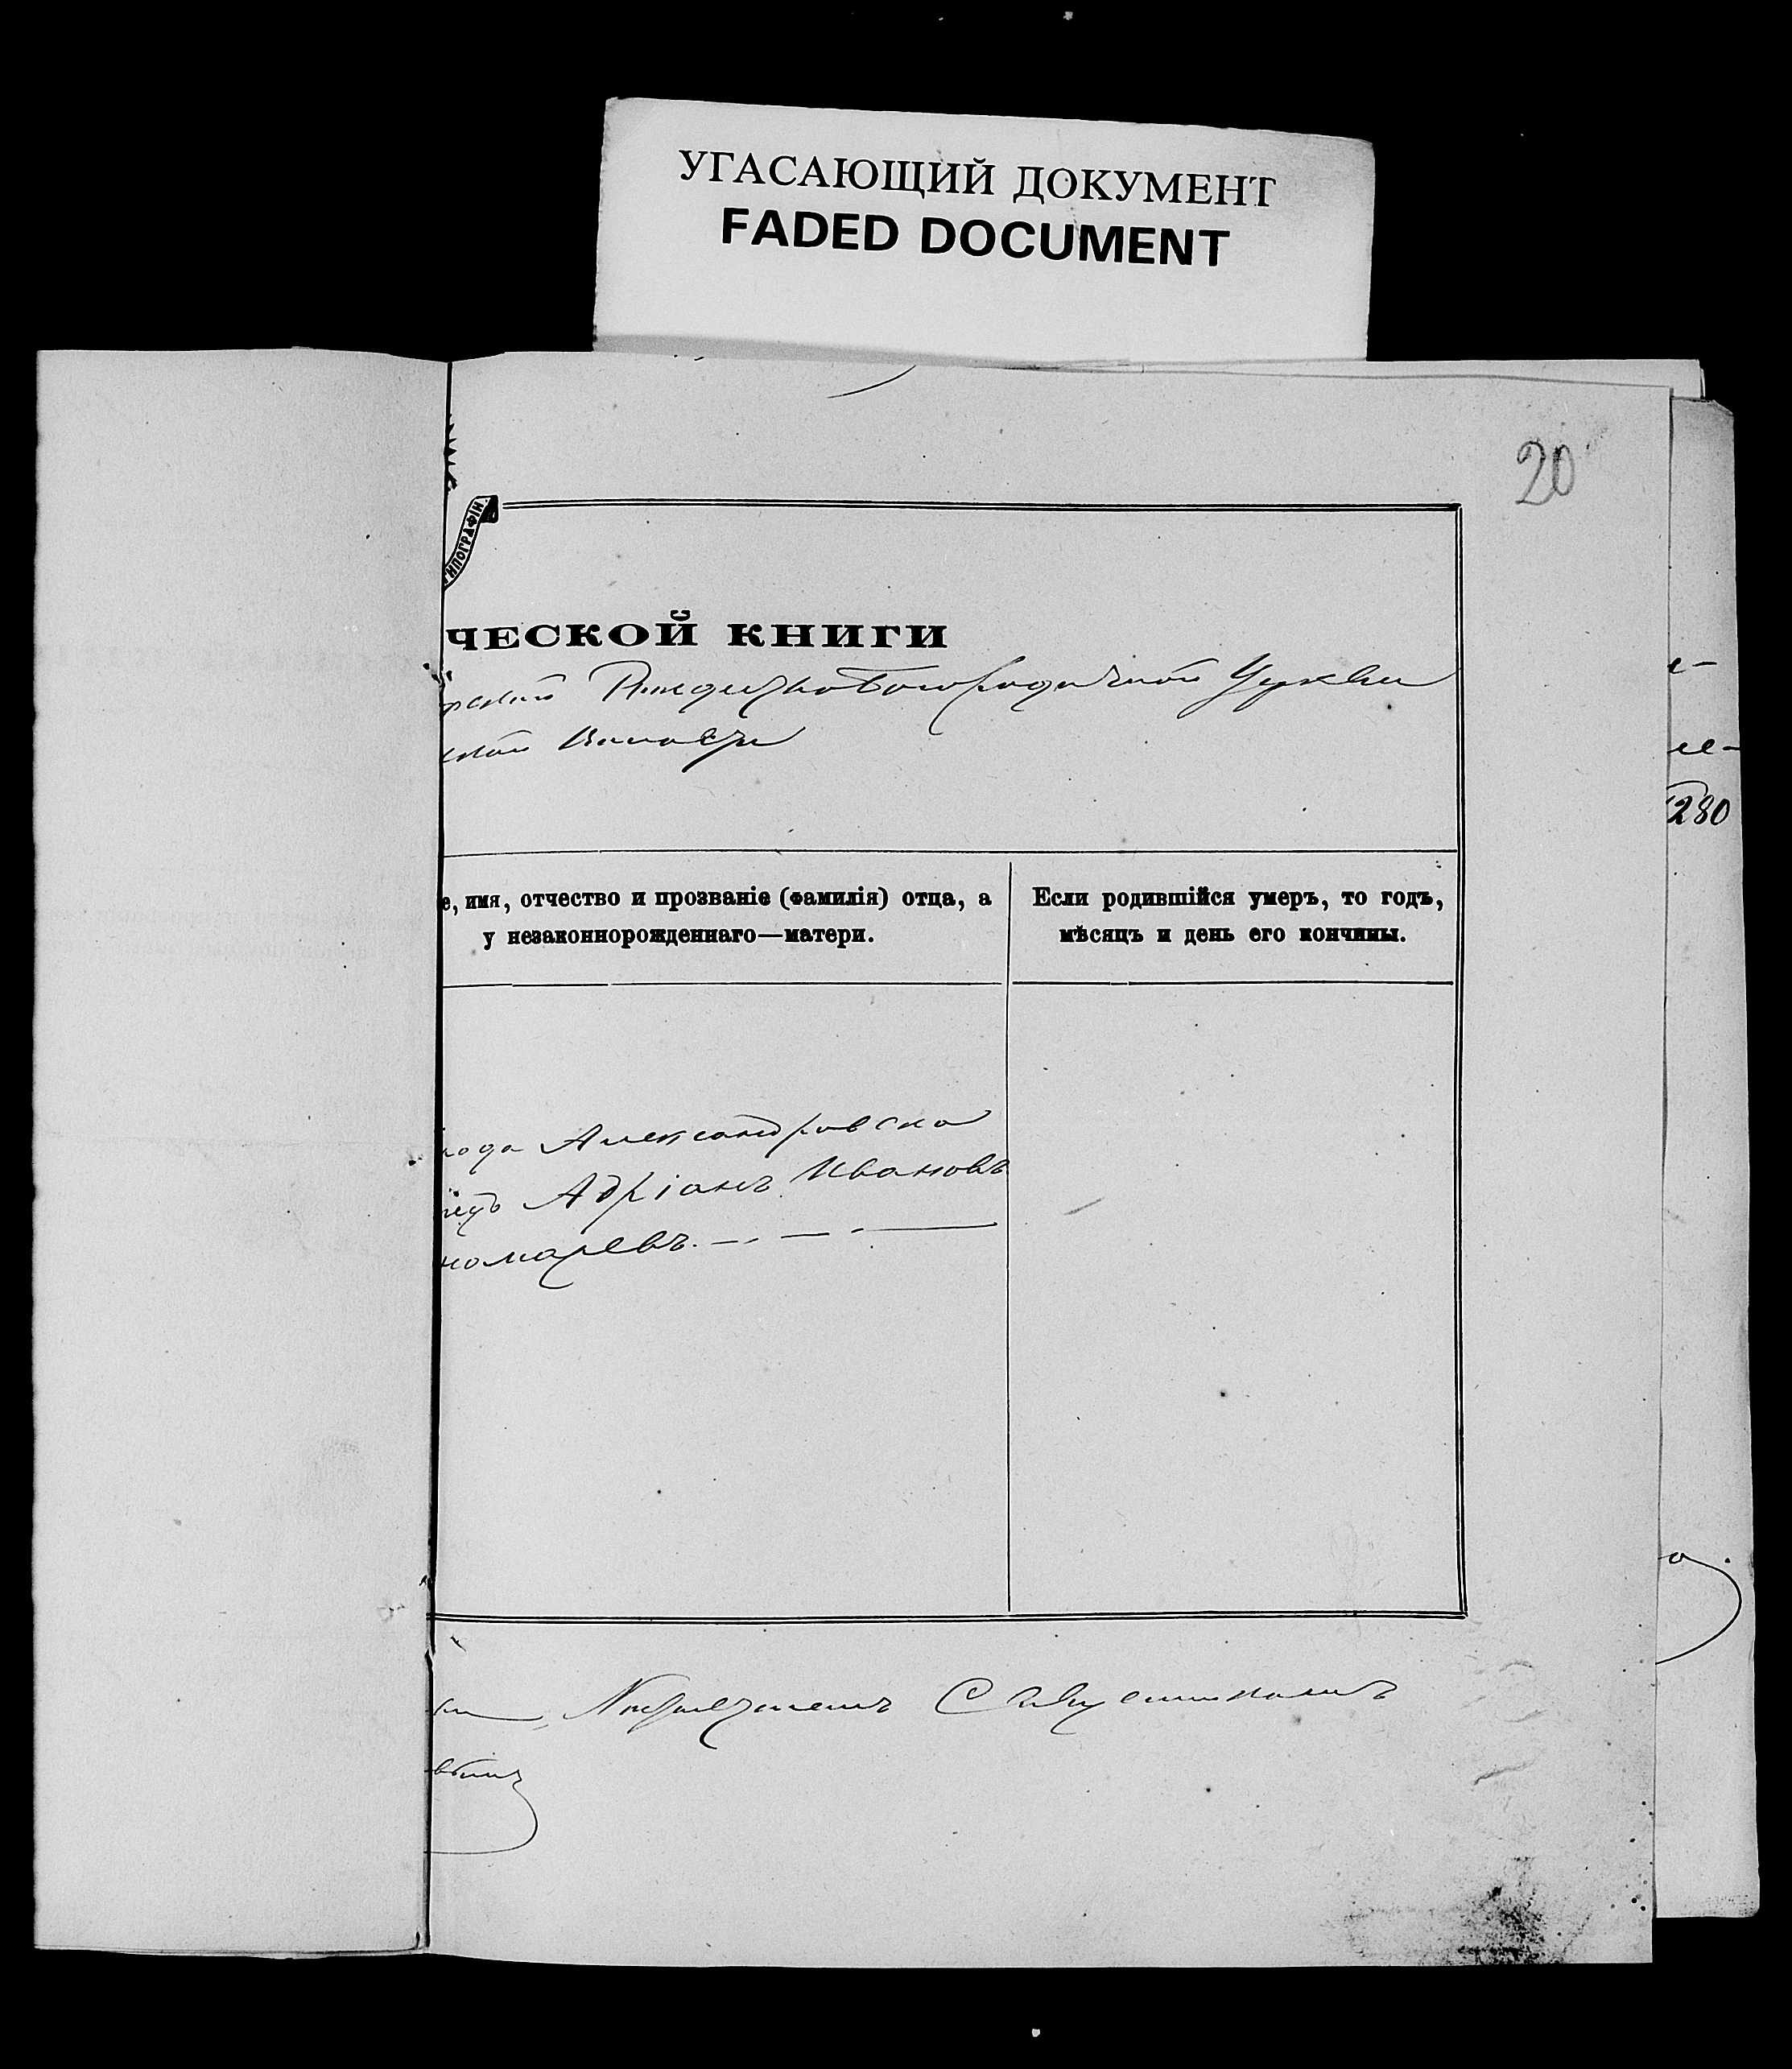 УГАСАЮЩИЙ ДОКУМЕНТ
FADED DOCUMENT
20
ИПОГРАФІИ.
ЧЕСКОЙ КНИГИ
ской Рождество Богородичной Церкви
ской Волости
280
е, имя, отчество и прозваніе (фамилія) отца, а
у незаконнорожденнаго—матери.
Если родившійся умеръ, то годъ,
мѣсяцъ и день его кончины.
рода Александровска
Адріанъ Ивановъ
номаревъ. — — —